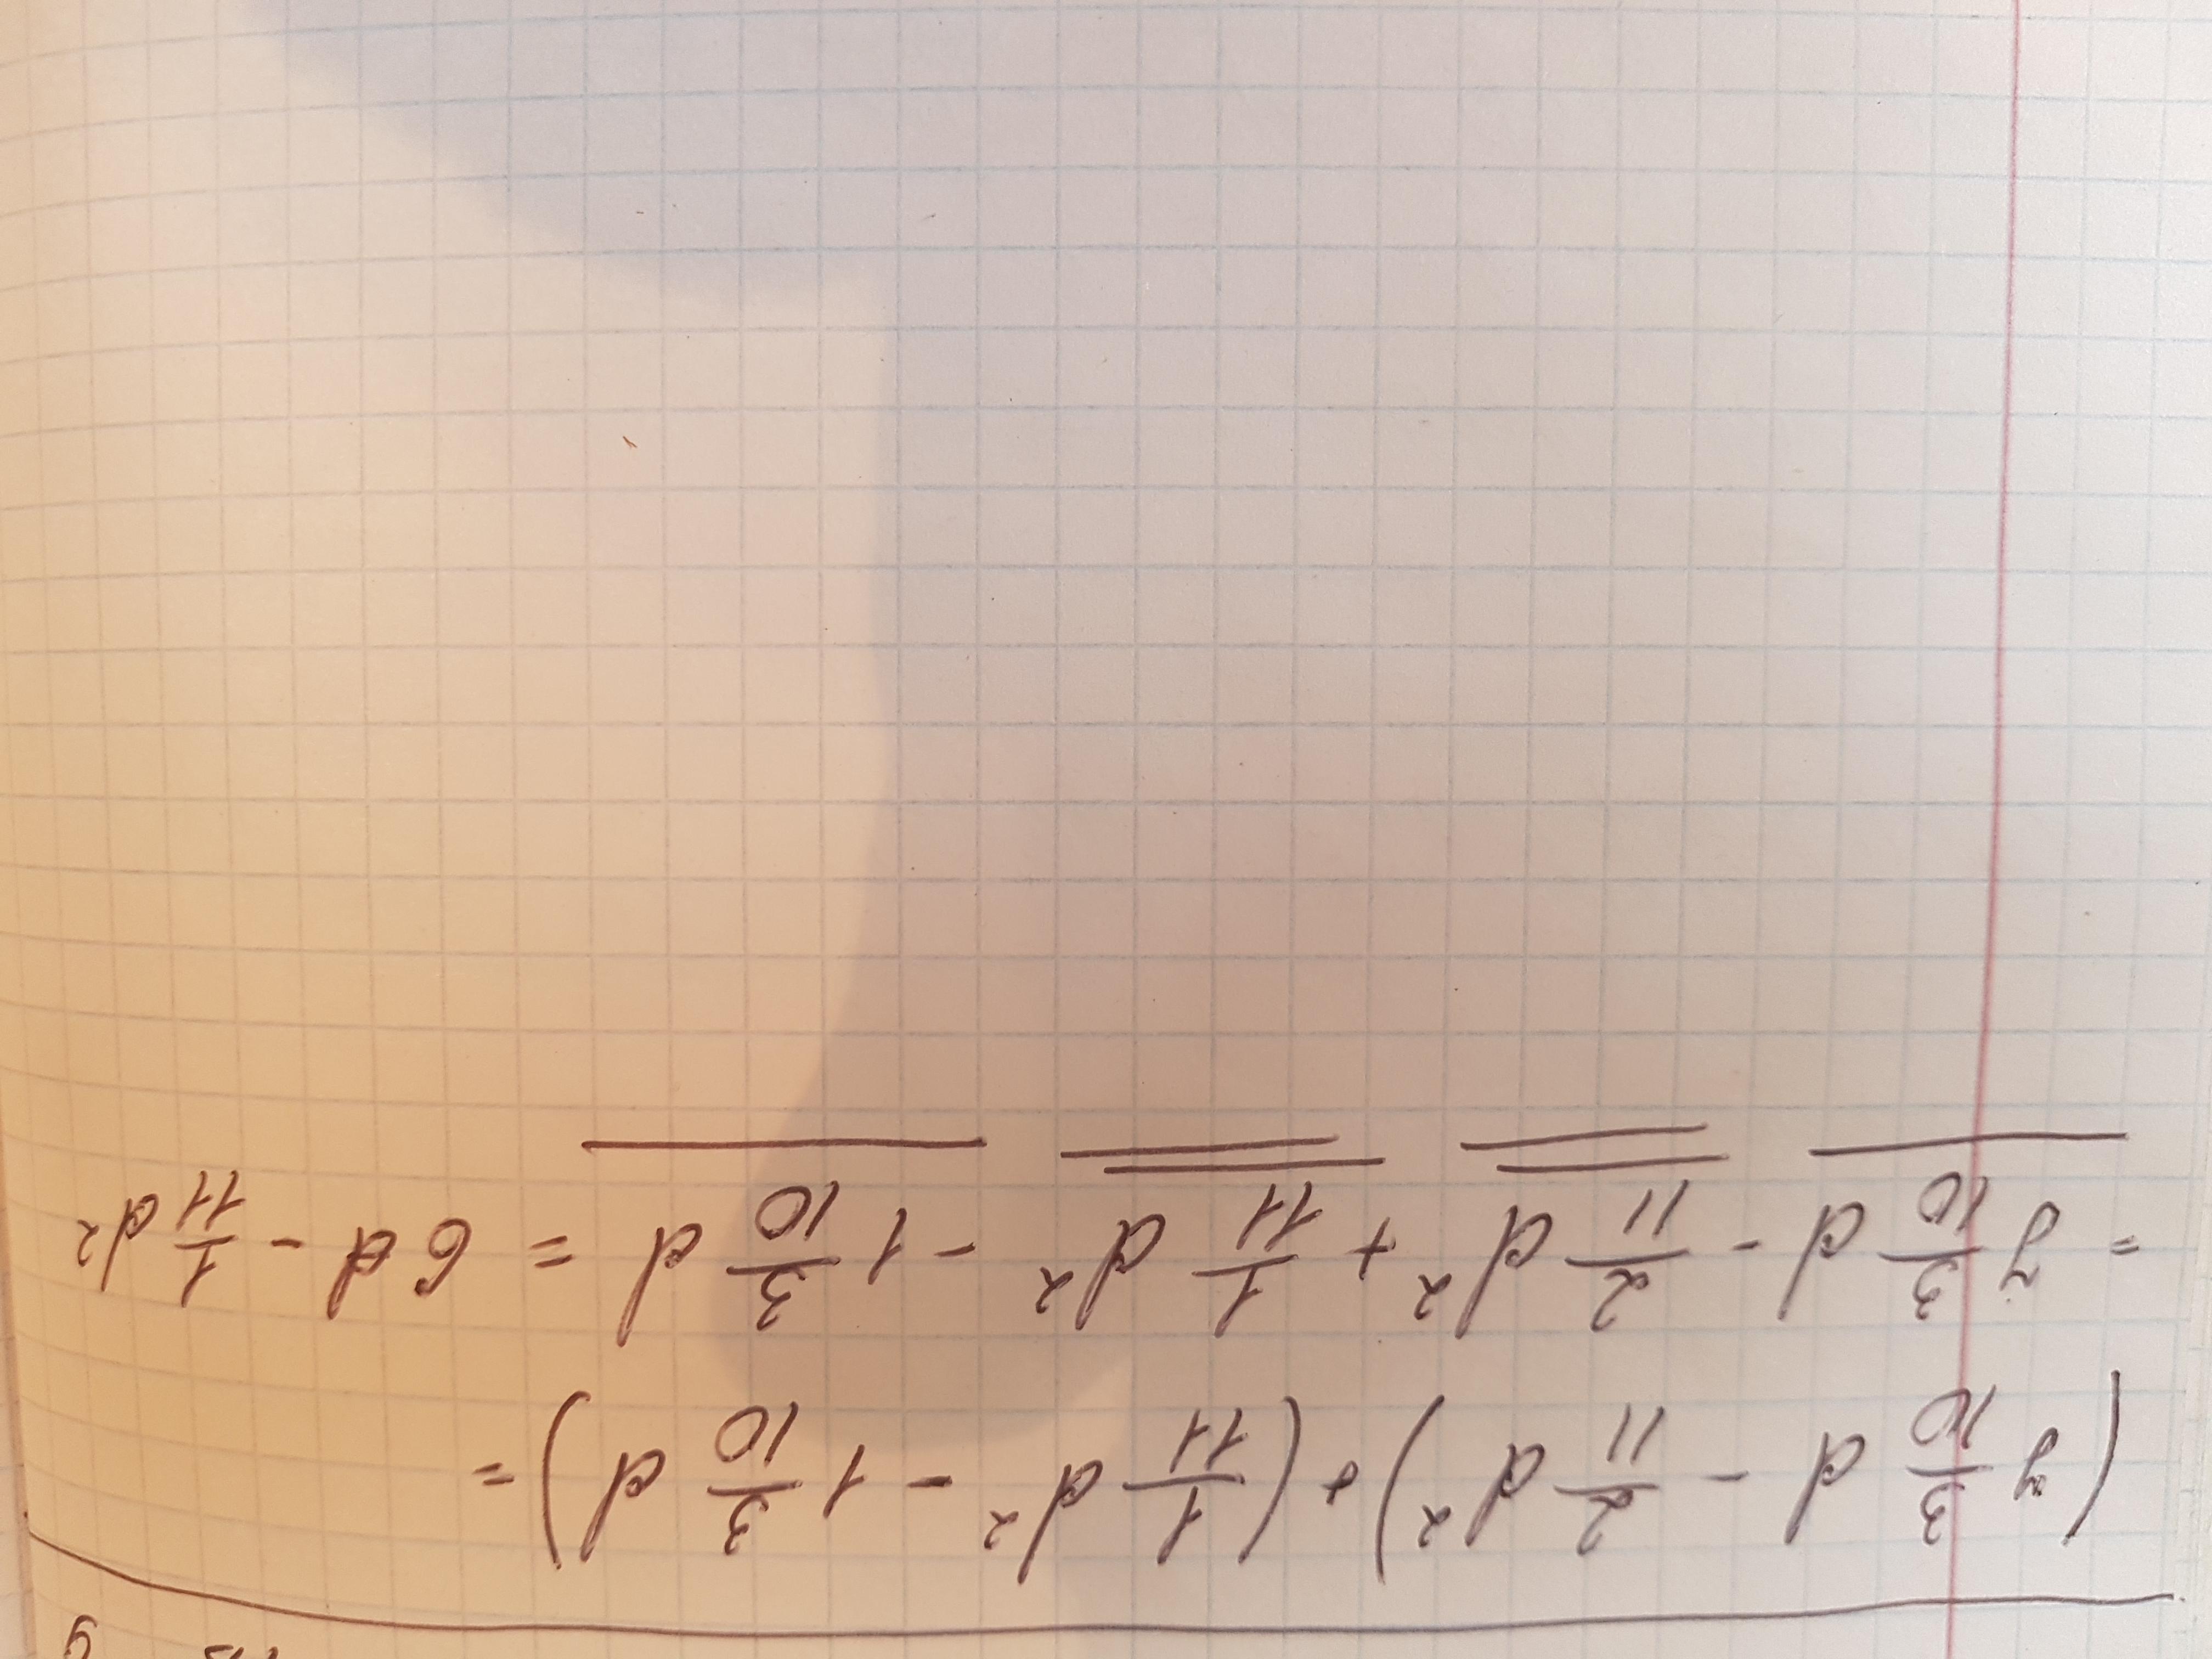 (7 3/10 d - 2/11 d²) + (1/11 d² - 1 3/10 d) =
= 7 3/10 d - 2/11 d² + 1/11 d² - 1 3/10 d = 6 d - 1/11 d²